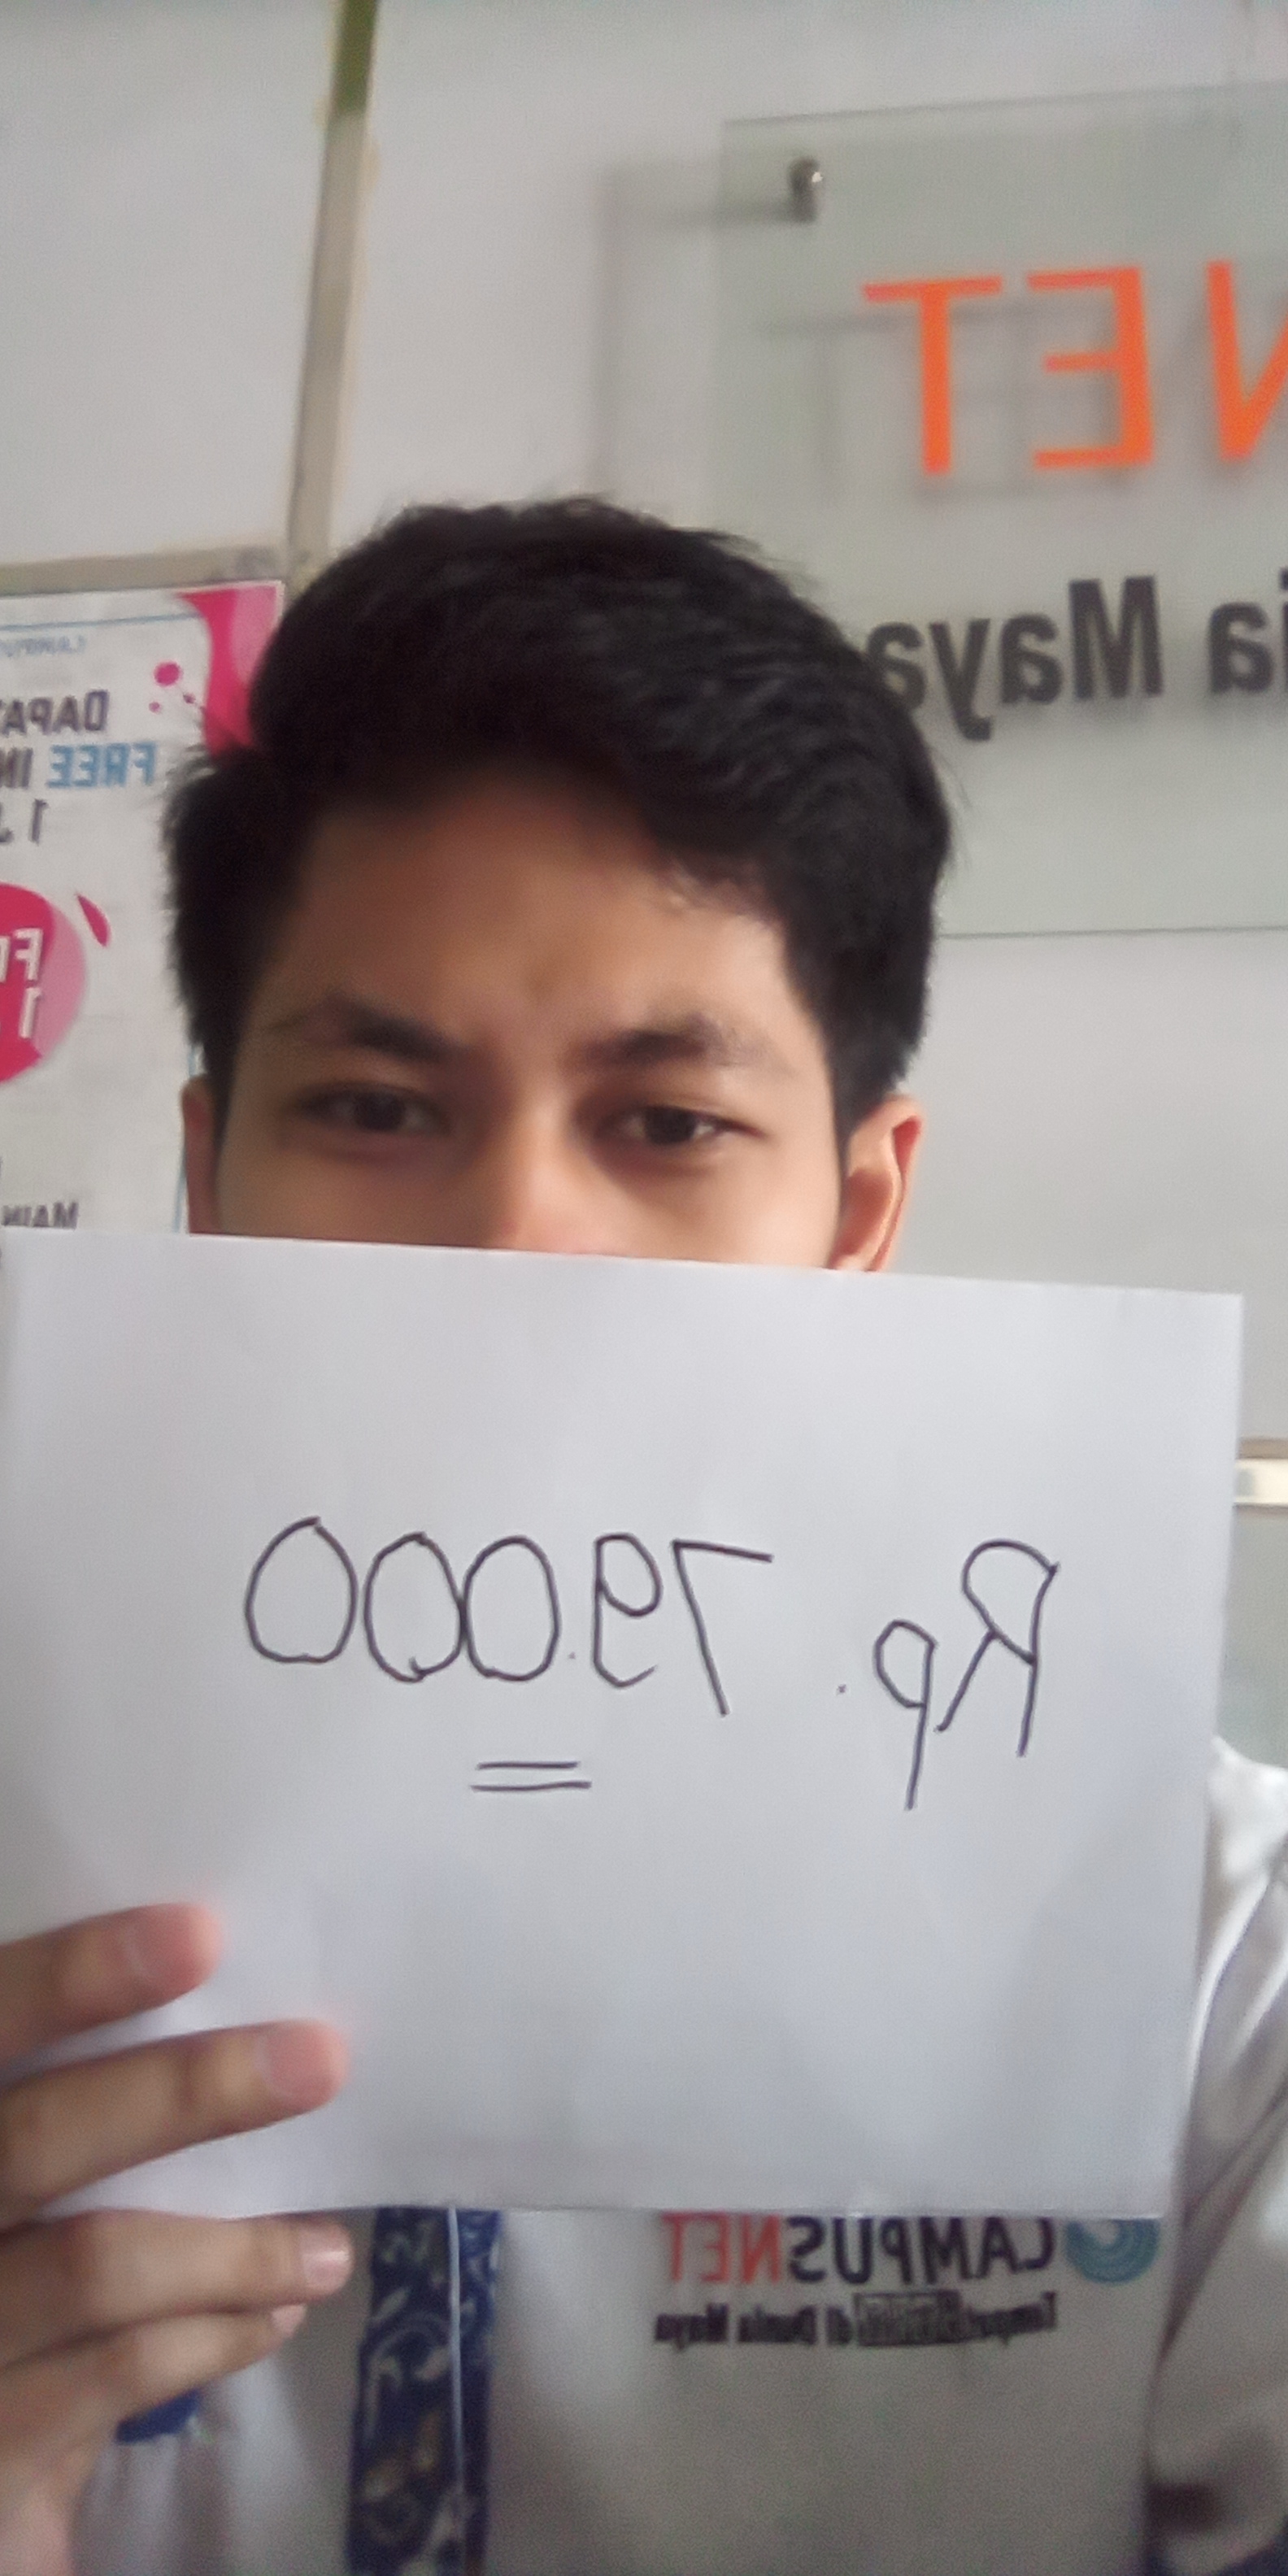 NET
ia Maya
DAPA
FREE IN
1 J
MAIN
Rp. 79.000
CAMPUSNET
di Dunia Maya